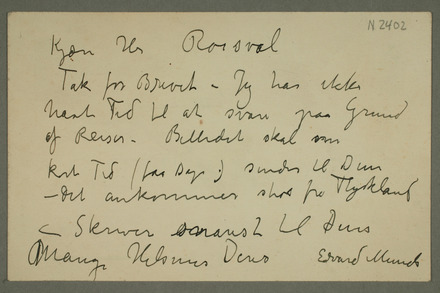 N 2402
Kjære Hr Roosval
Tak for Brevet – Jeg har ikke
havt Tid til at svare paa Grund
af Reiser – Billedet skal om
kort Tid (faa Dage) sendes til Dem
– Det ankommer strax fra Tyskland
– Skriver snarest til Dem
Mange Hilsener Deres Edvard Munch